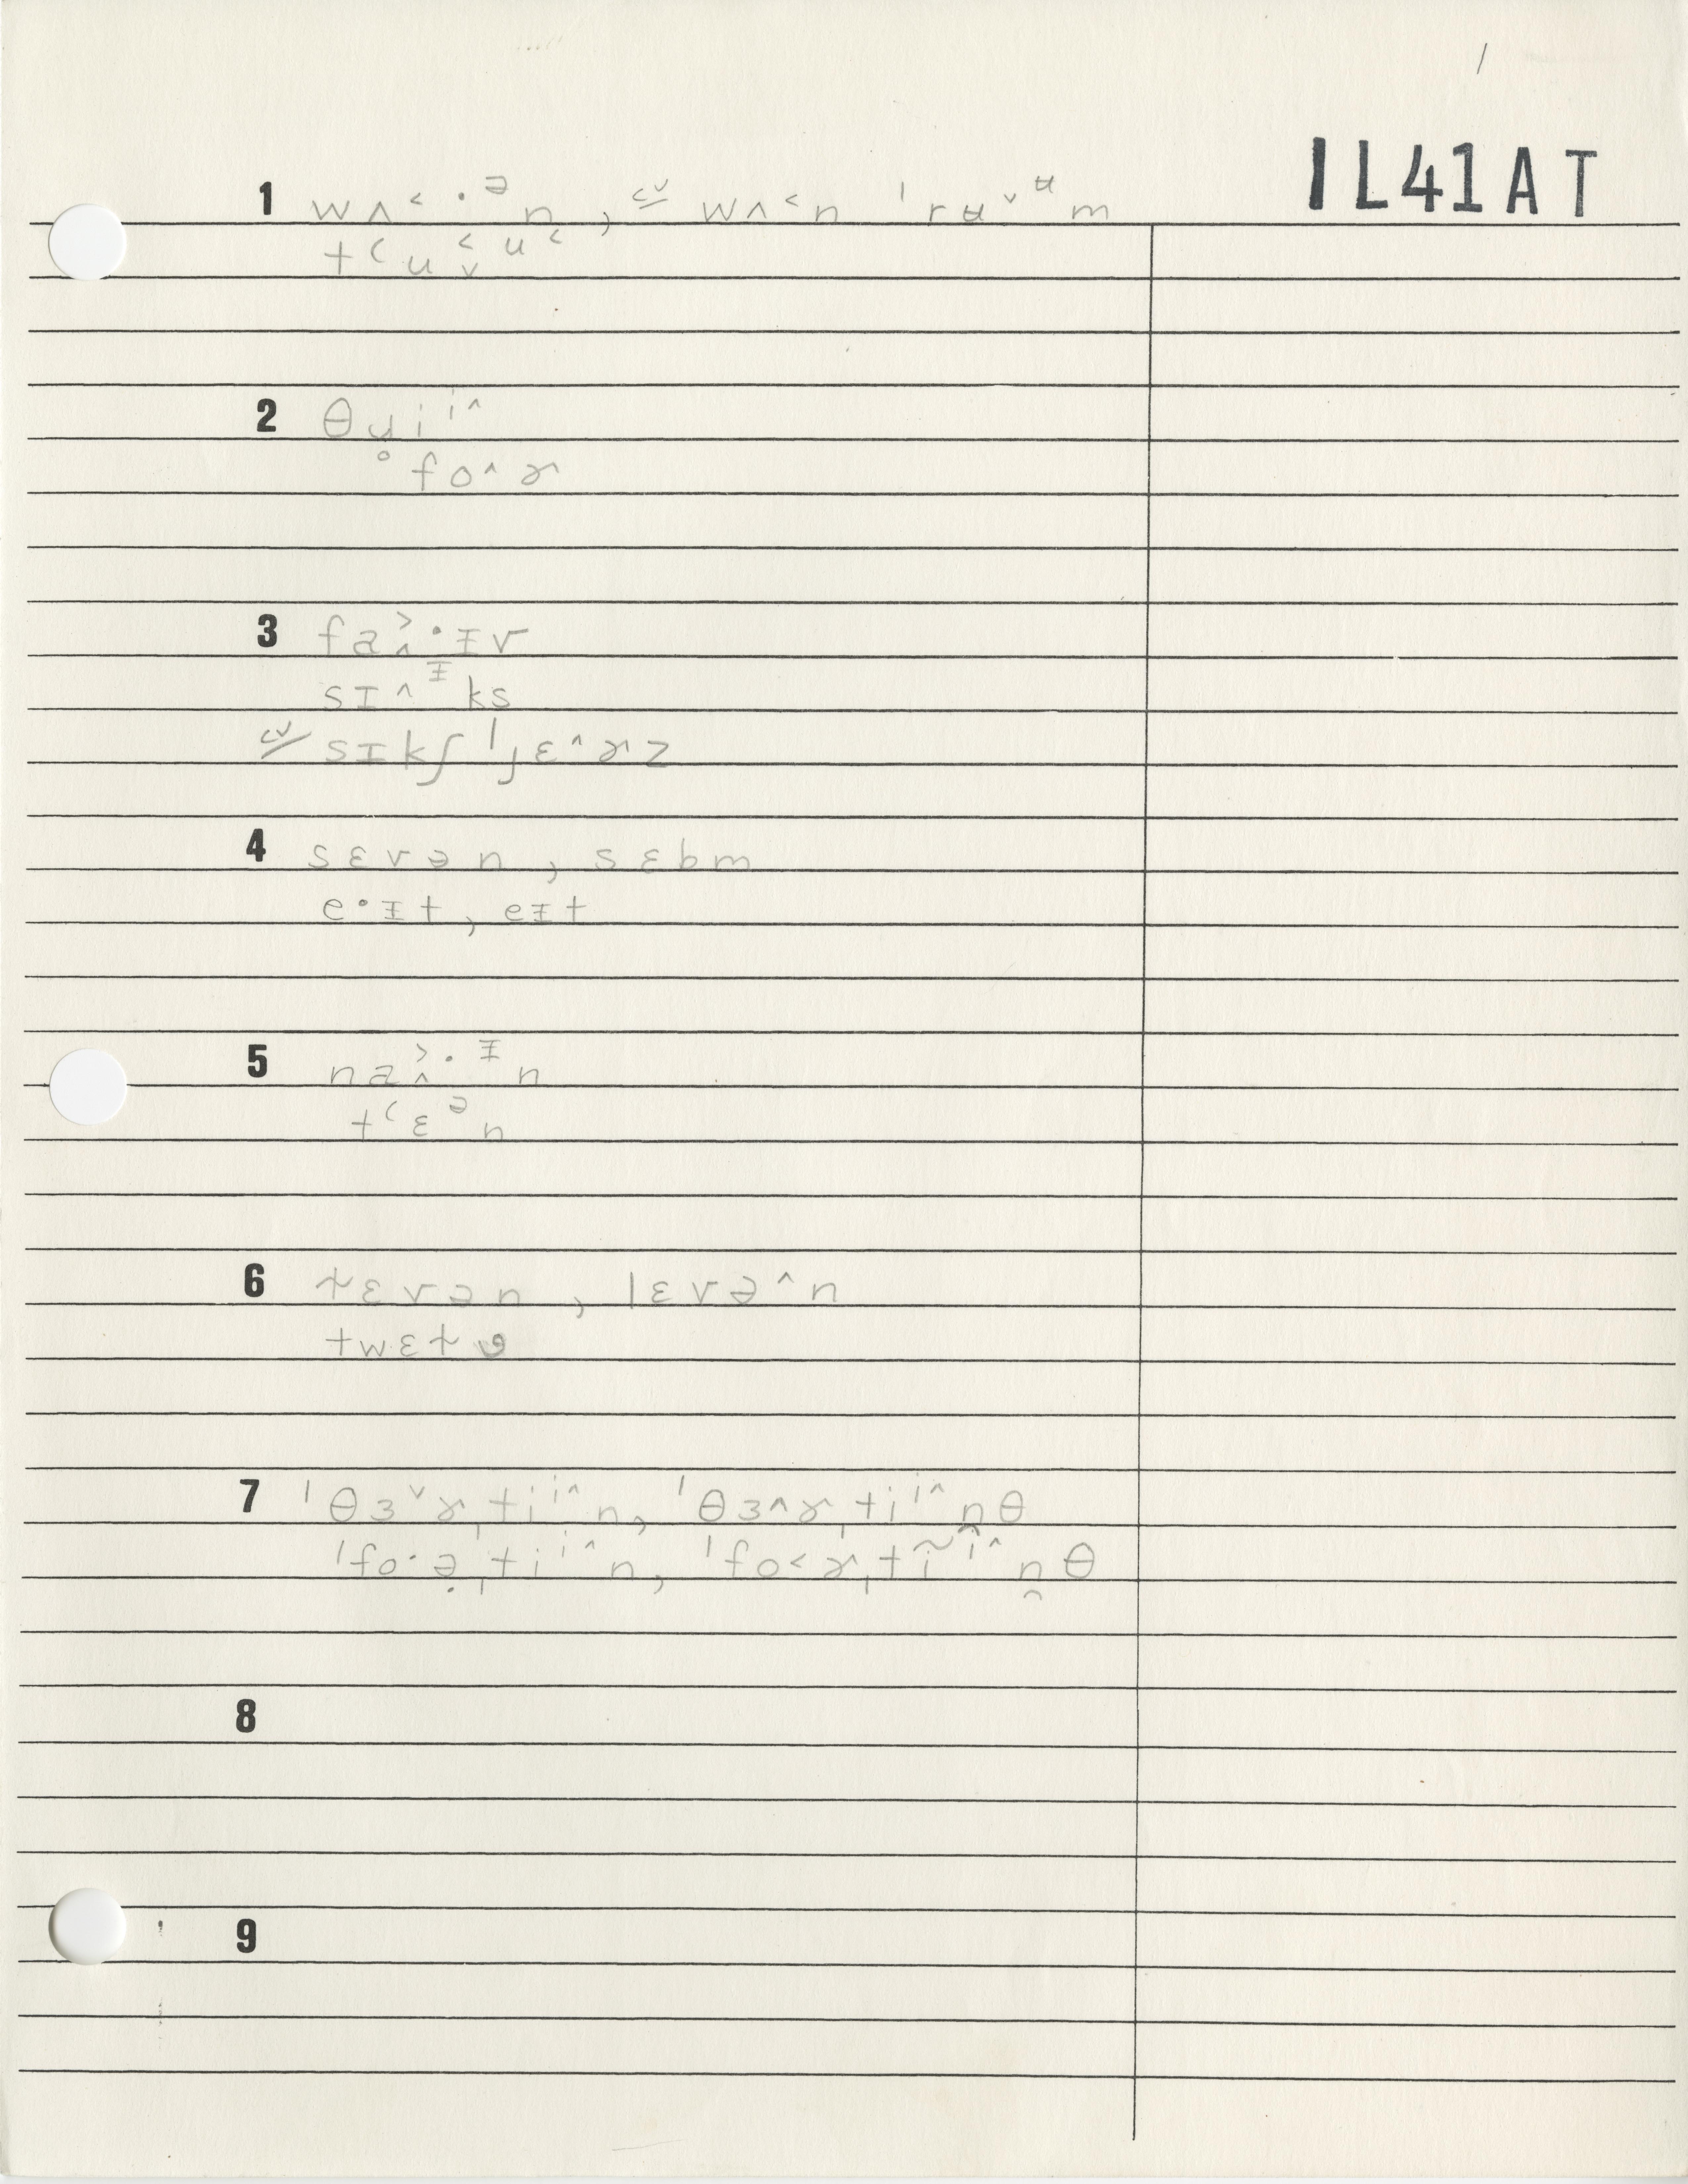 1
1L41AT
1 wʌ˂·ᵊn, cv wʌ˂n ˈrʉ˅ᶶm
tʻu˂˅ᵘ˂
2 θɹ̥iⁱ^
fo^ɚ
3 fa˃^·ɪv
sɪ^ᶦks
cv sɪkʃ ˈjɛ^ɚz
4 sɛvən, sɛbm
e·ɪt, eɪt
5 na˃^·ᶦn
tʻɛᵊn
6 ɫɛvən, lɛvə^n
twɛɫv
7 ˈθɜ˅ɚˌtiⁱ^n, ˈθɜ^ɚˌtiⁱ^nθ
ˈfo·ə̣ˌtiⁱ^n, ˈfo˂ɚˌtĩⁱ^n̯θ
8
9